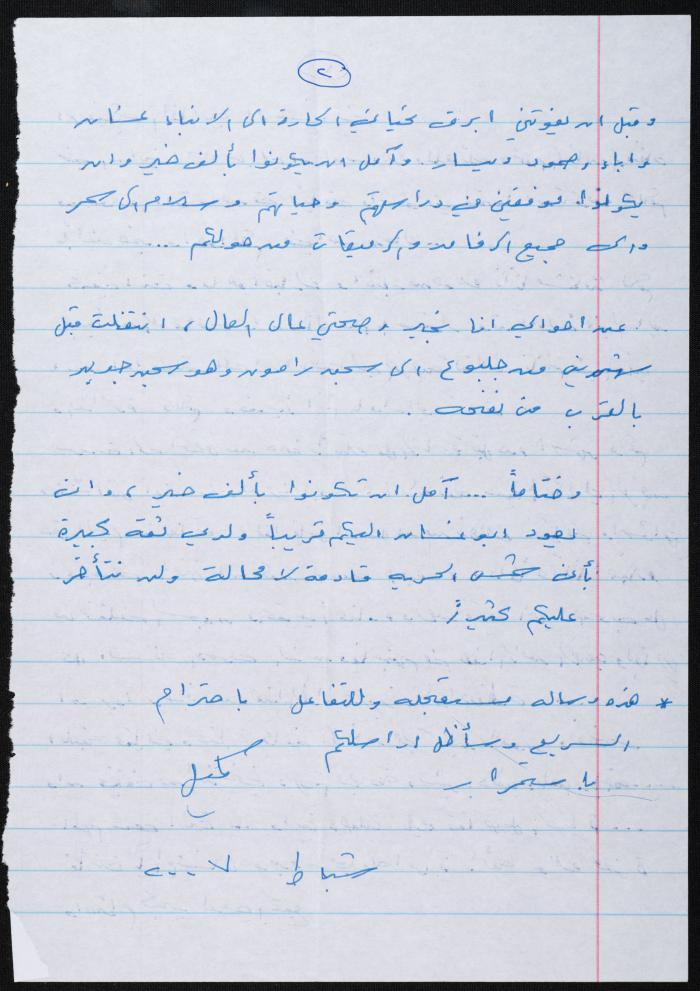 ٢
وقبل ان يفوتني ابرق تحياتي الحارة الى الابناء غسان
واباء وصمود ويسار وآمل ان يكونوا بألف خير وان
يكونوا موفقين في دراستهم وحياتهم وسلام الى سحر
والى جميع الرفاق والرفيقات من حولكم ...
عن احوالي انا بخير وصحتي عال العال ، انتقلت قبل
شهرين من جلبوع الى سجن رامون وهو سجن جديد
بالقرب من نفحه .
وختاماً ... آمل ان تكونوا بألف خير ، وان
يعود ابو غسان اليكم قريباً ولدي ثقة كبيرة
بأن شمس الحرية قادمة لا محالة ولن نتأخر
عليكم كثيرً .
* هذه رساله مستعجله وللتفاعل باحترام
السريع وسأظل اراسلكم
باستمرار
كميل
شباط ٢٠٠٧